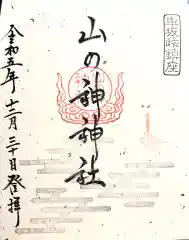 串坂峠鎮座
山の神神社
令和五年十二月三十日登拝